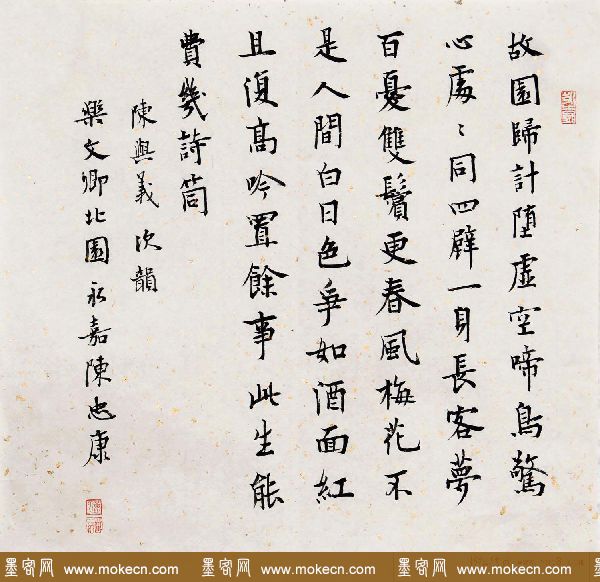 故園歸計墮虛空啼鳥驚
心處〻同四壁一身長客夢
百憂雙鬢更春風梅花不
是人間白日色爭如酒面紅
且復高吟置餘事此生能
費幾詩筒
陳與義次韻
樂文卿北園永嘉陳忠康
墨客网 www.mokecn.com 墨客网 www.mokecn.com 墨客网 www.mokecn.com